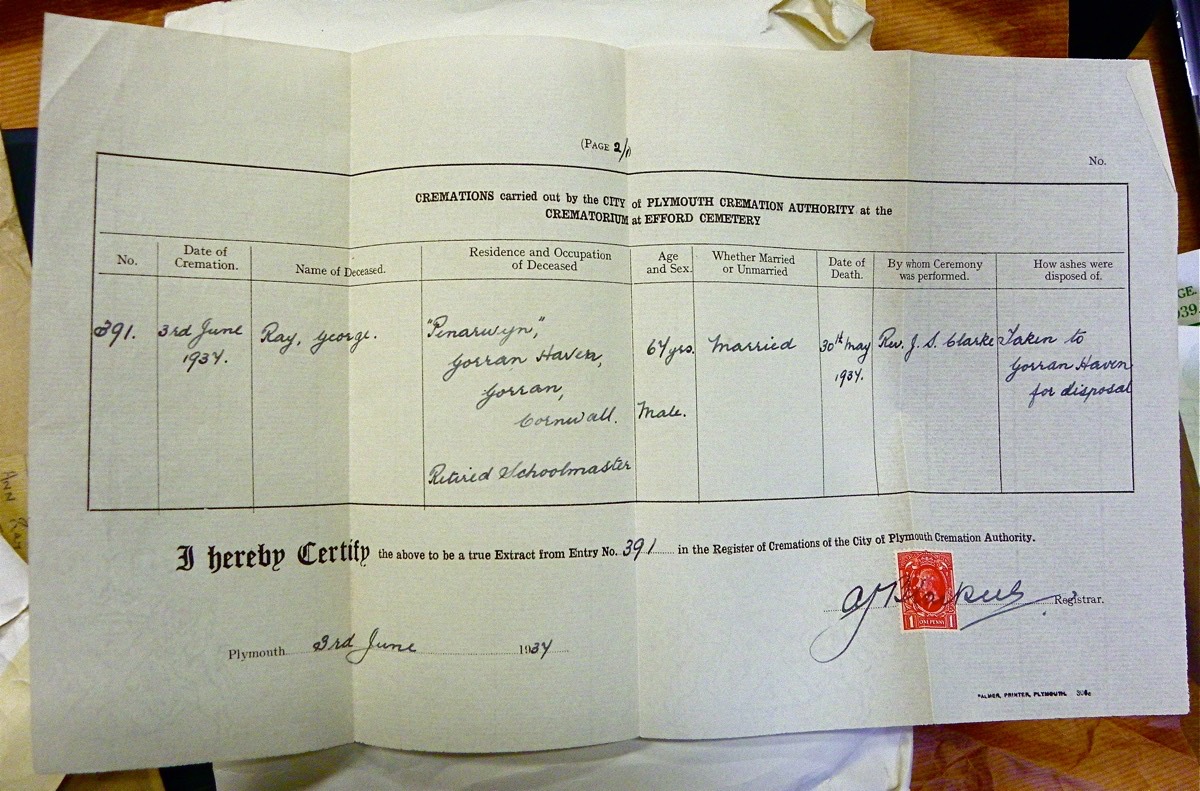 (PAGE 2/11
No.
CREMATIONS carried out by the CITY of PLYMOUTH CREMATION AUTHORITY at the
CREMATORIUM at EFFORD CEMETERY
No.
Date of
Cremation.
Name of Deceased.
Residence and Occupation
of Deceased
Age
and Sex.
Whether Married
or Unmarried
Date of
Death.
By whom Ceremony
was performed.
How ashes were
disposed of.
391.
3rd June
1934.
Ray, George.
"Penarwyn,"
Gorran Haven,
Gorran,
Cornwall.
Retired Schoolmaster
64 yrs.
Male.
Married
30th May
1934.
Rev. J. S. Clarke
Taken to
Gorran Haven
for disposal
I hereby Certify the above to be a true Extract from Entry No. 391 in the Register of Cremations of the City of Plymouth Cremation Authority.
Registrar.
1 ONE PENNY 1
Plymouth 3rd June 1934
PALMER, PRINTER, PLYMOUTH.
GE.
939.
ANN